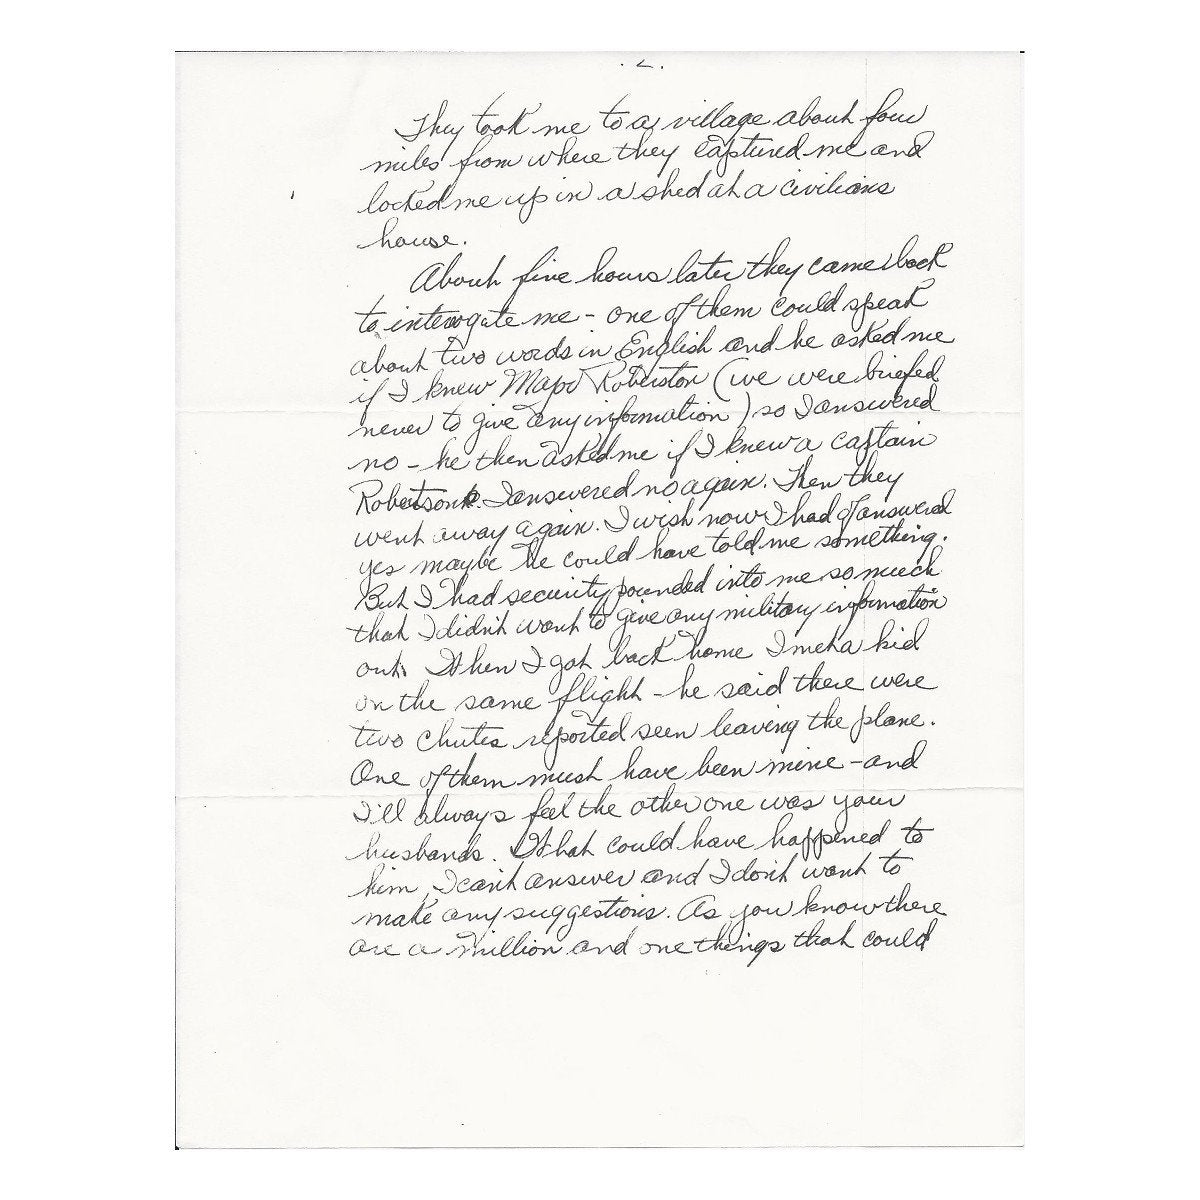 . 2.
They took me to a village about four
miles from where they captured me and
locked me up in a shed at a civilians
house.
About five hours later they came back
to interogate me - one of them could speak
about two words in English and he asked me
if I knew Major Roberston (we were briefed
never to give any information) so I answered
no - he then asked me if I knew a captain
Robertson. I answered no again. Then they
went away again. I wish now I had of answered
yes maybe he could have told me something.
But I had security pounded into me so much
that I didn't want to give any military information
out. When I got back home I met a kid
on the same flight - he said there were
two chutes reported seen leaving the plane.
One of them must have been mine - and
I'll always feel the other one was your
husbands. What could have happened to
him, I can't answer and I don't want to
make any suggestions. As you know there
are a million and one things that could